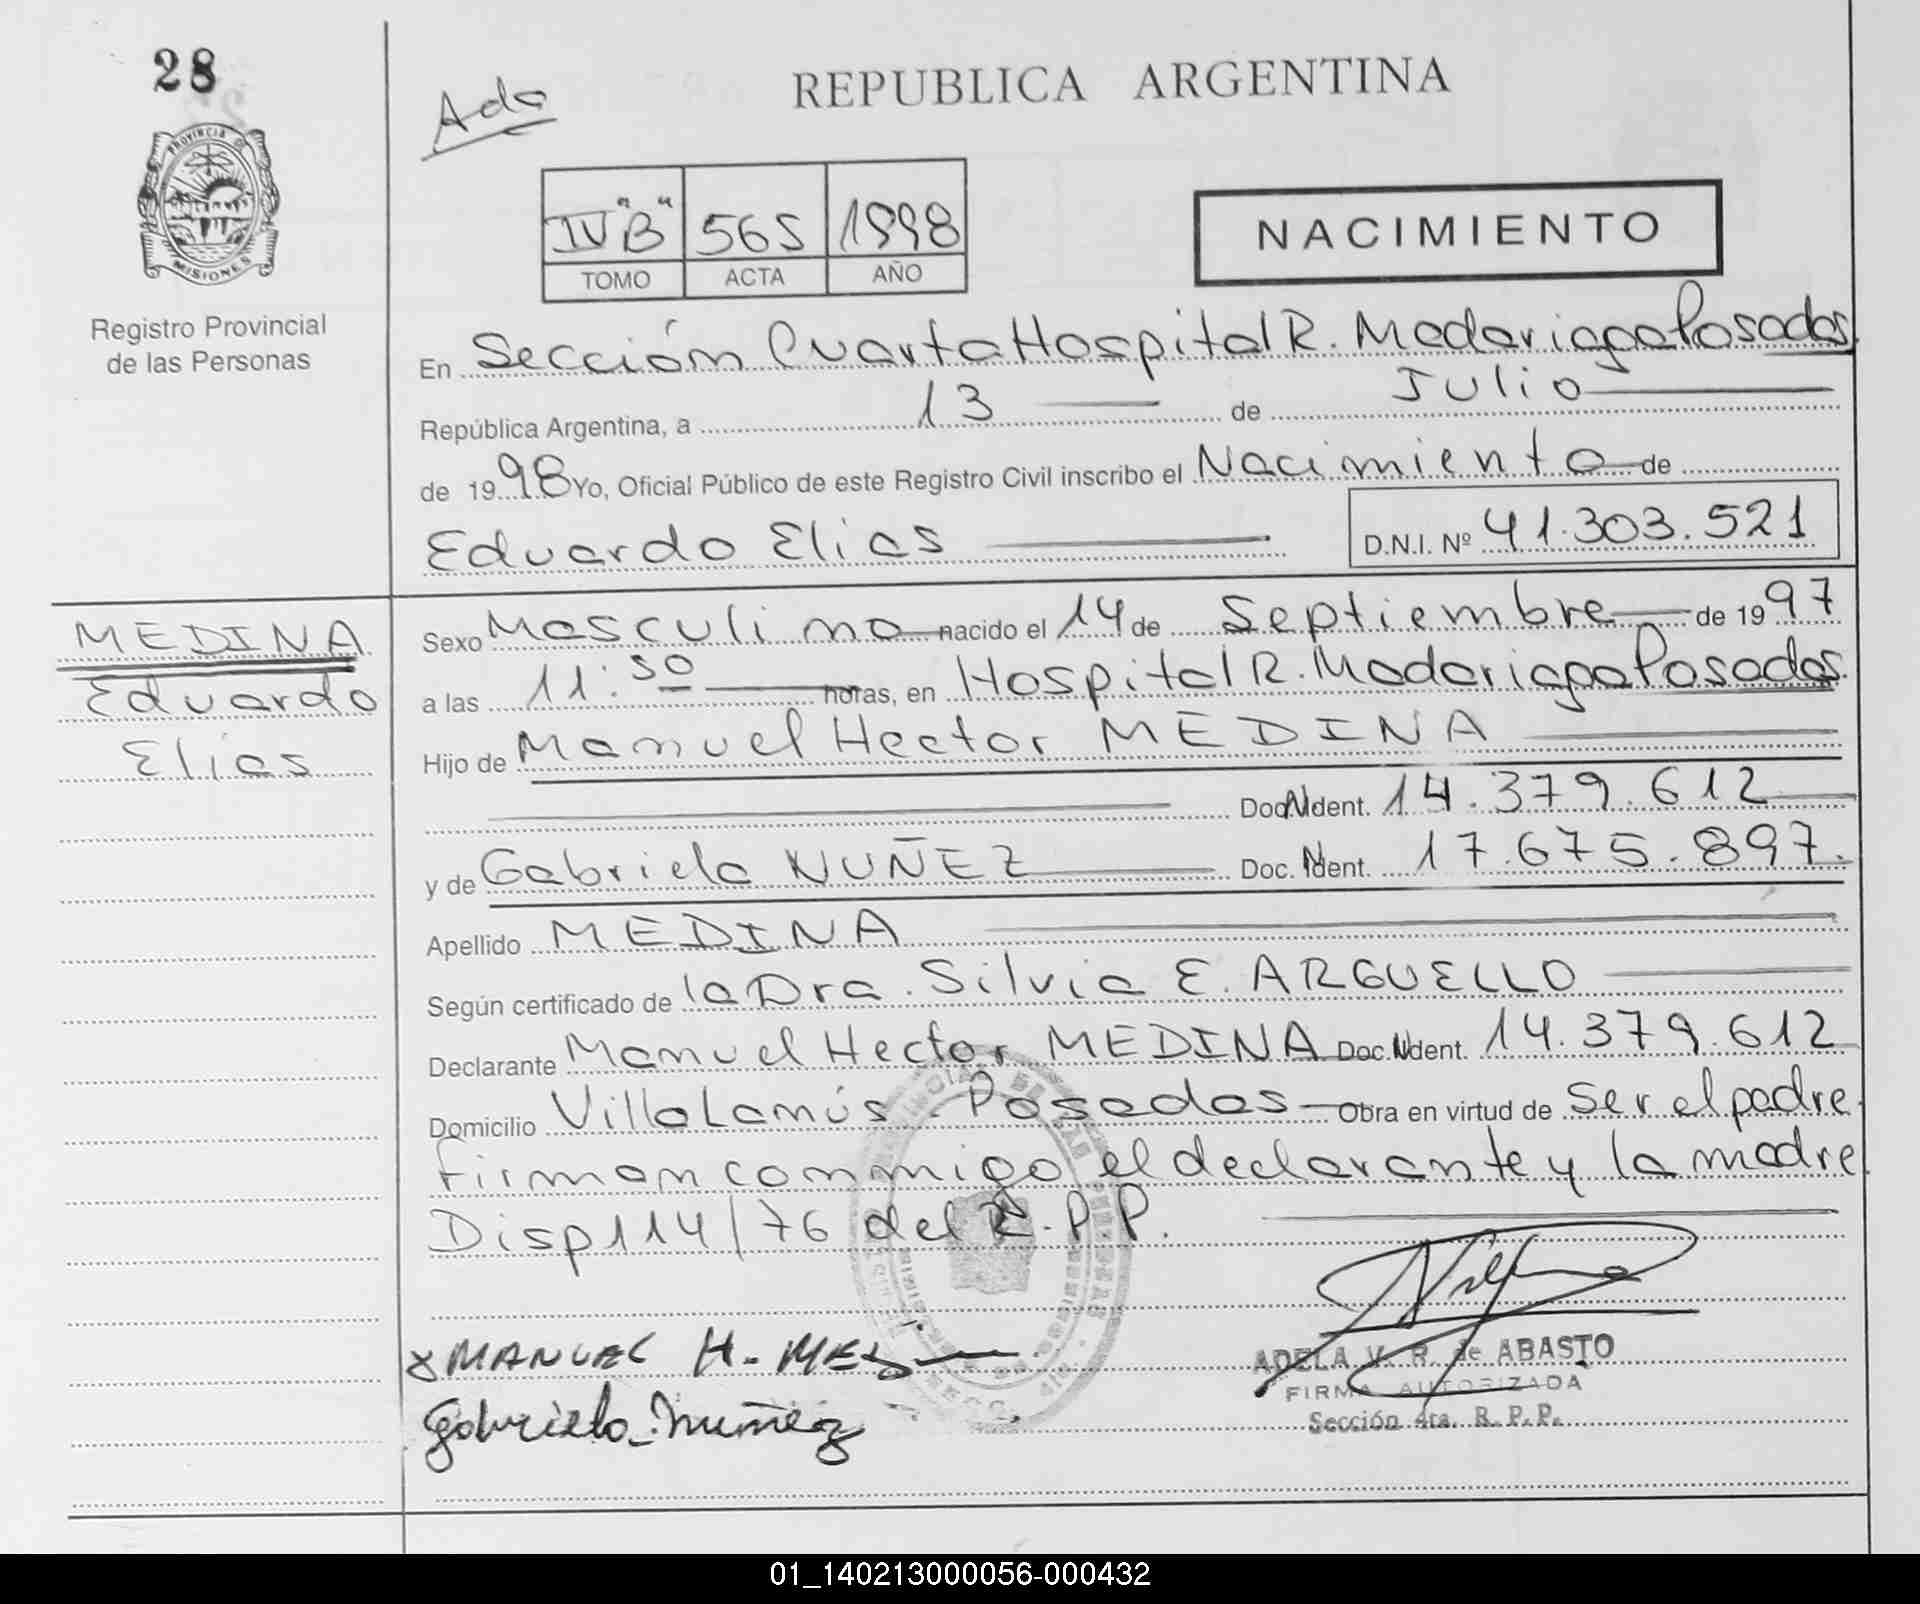 28
Ads
REPUBLICA ARGENTINA
PROVINCIA DE
MISIONES
Registro Provincial
de las Personas
IV "B" 565 1998
TOMO ACTA AÑO
NACIMIENTO
En Sección Cuarta Hospital R. Madariaga Posadas
República Argentina, a 13 de Julio
de 1998 Yo, Oficial Público de este Registro Civil inscribo el Nacimiento de
Eduardo Elias D.N.I. Nº 41.303.521
MEDINA
Eduardo
Elias
Sexo Masculino nacido el 14 de Septiembre de 1997
a las 11:50 horas, en Hospital R. Madariaga Posadas.
Hijo de Manuel Hector MEDINA
Doc. N Ident. 14.379.612
y de Gabriela NUÑEZ Doc. N Ident. 17.675.897.
Apellido MEDINA
Según certificado de la Dra. Silvia E. ARGUELLO
Declarante Manuel Hector MEDINA Doc. N Ident. 14.379.612
Domicilio Villa Lanús. Posadas Obra en virtud de Ser el padre.
Firman conmigo el declarante y la madre.
Disp 114/76 del R.P.P.
x MANUEL H. MED
Gabriela Nuñez
ADELA V. R. de ABASTO
FIRMA AUTORIZADA
Sección 4ta. R. P. P.
01_140213000056-000432